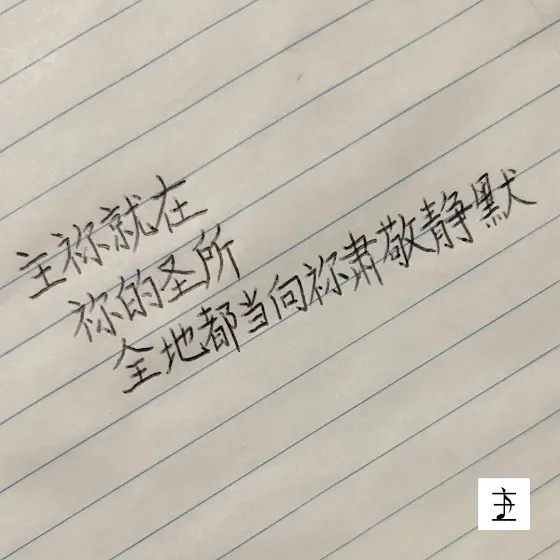 主祢就在
祢的圣所
全地都当向祢肃敬静默